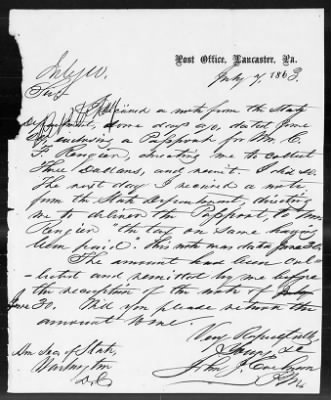 Post Office, Lancaster, Pa.
July 7, 1863.
July 10.
Sir
I received a note from the State
Department, some days ago, dated June
enclosing a Passport for Wm. C.
F. Rengier, directing me to collect
three dollars, and remit. I did so.
The next day I received a note
from the State Department, directing
me to deliver the Passport, to Wm
Rengier "the tax on same having
been paid". this note was dated June 30.
The amount have been col-
lected and remitted by me before
the reception of the note of July
June 30. Will you please return the
amount to me.
Very Respectfully
Yours &c
John J. Cochran
P.M.
Hon Sec of State,
Washington
D.C